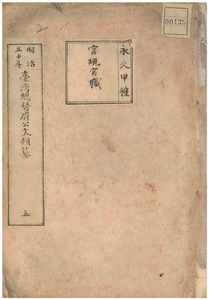 00125
永久甲種
官規官職
明治
三十年
臺灣總督府公文類纂
五